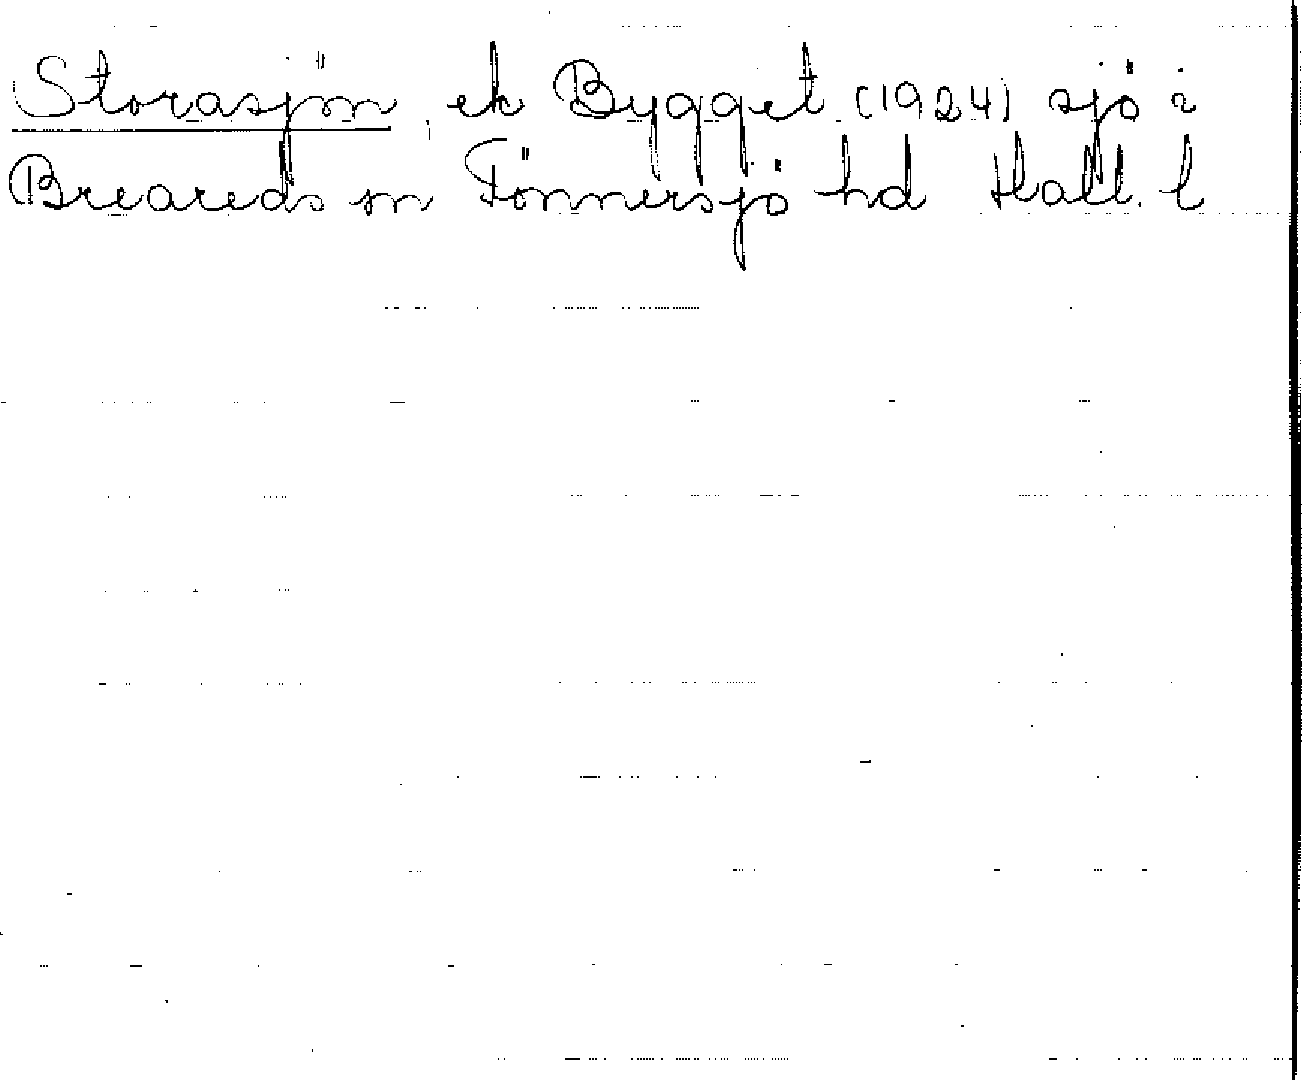 Storasjön, ek Bygget (1924) sjö i
Breareds sn Tönnersjö hd Hall. l